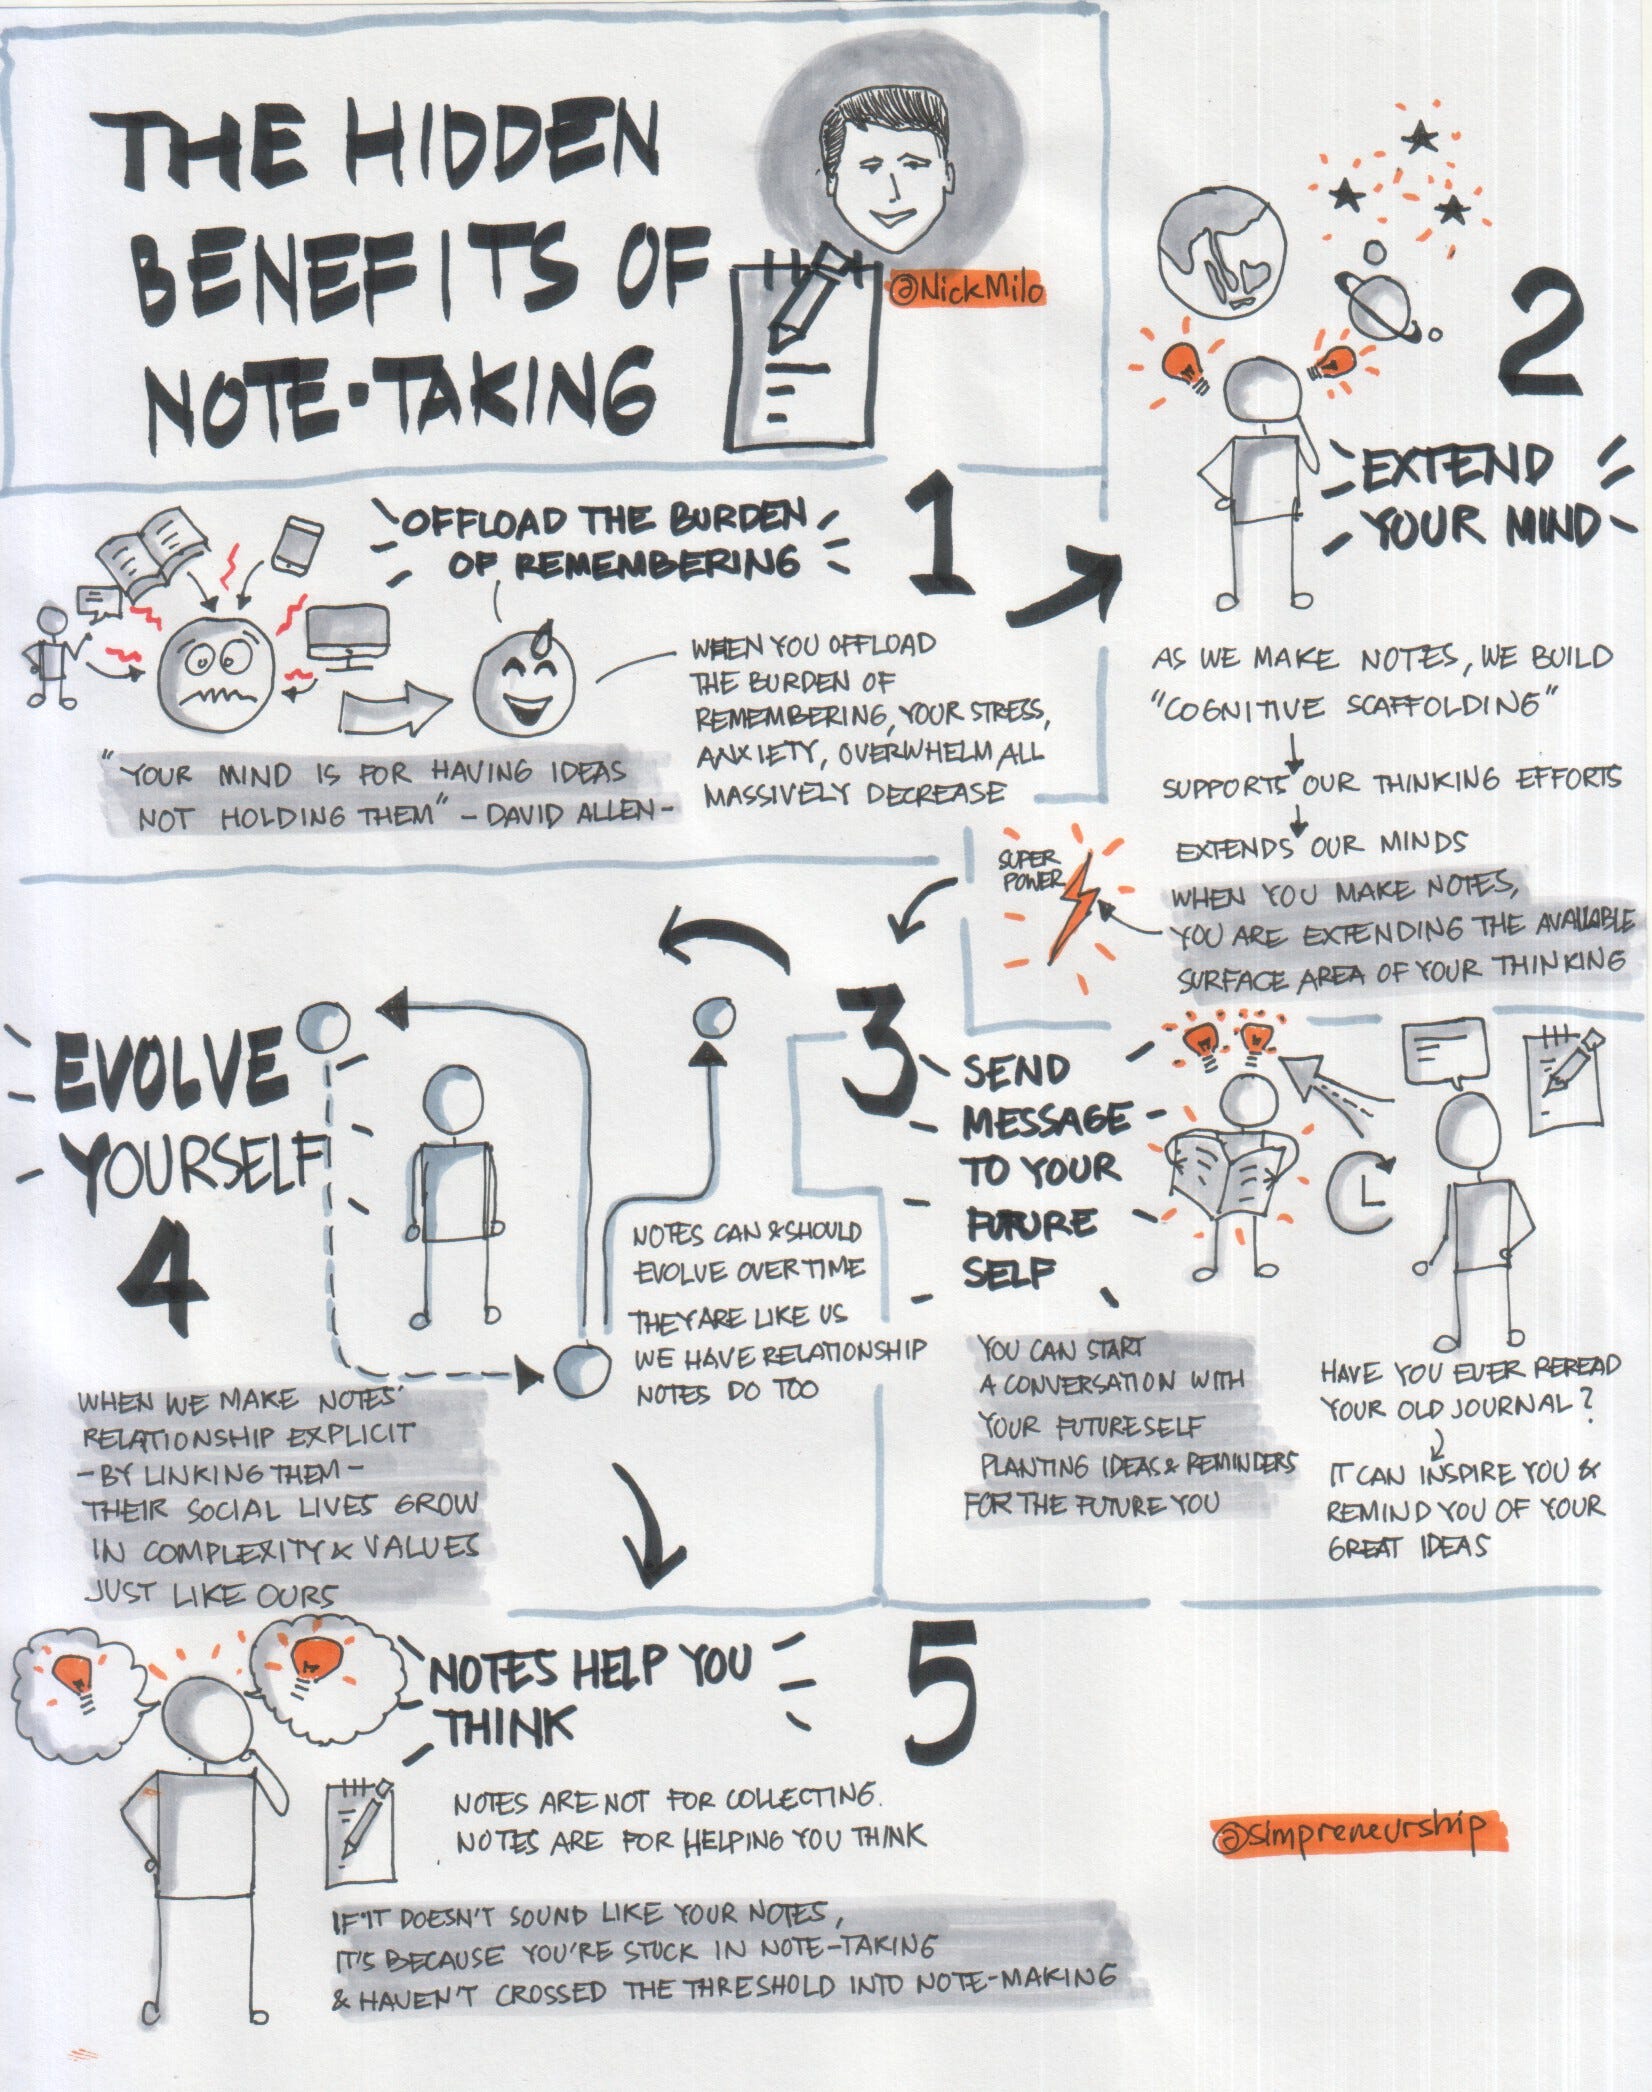 THE HIDDEN
BENEFITS OF
NOTE-TAKING
@NickMilo
1
OFFLOAD THE BURDEN
OF REMEMBERING
WHEN YOU OFFLOAD
THE BURDEN OF
REMEMBERING, YOUR STRESS,
ANXIETY, OVERWHELM ALL
MASSIVELY DECREASE
"YOUR MIND IS FOR HAVING IDEAS
NOT HOLDING THEM" - DAVID ALLEN -
2
EXTEND
YOUR MIND
AS WE MAKE NOTES, WE BUILD
"COGNITIVE SCAFFOLDING"
SUPPORTS OUR THINKING EFFORTS
EXTENDS OUR MINDS
WHEN YOU MAKE NOTES,
YOU ARE EXTENDING THE AVAILABLE
SURFACE AREA OF YOUR THINKING
SUPER
POWER
3
SEND
MESSAGE
TO YOUR
FUTURE
SELF
YOU CAN START
A CONVERSATION WITH
YOUR FUTURE SELF
PLANTING IDEAS & REMINDERS
FOR THE FUTURE YOU
HAVE YOU EVER REREAD
YOUR OLD JOURNAL?
IT CAN INSPIRE YOU &
REMIND YOU OF YOUR
GREAT IDEAS
EVOLVE
YOURSELF
4
NOTES CAN & SHOULD
EVOLVE OVER TIME
THEY ARE LIKE US
WE HAVE RELATIONSHIP
NOTES DO TOO
WHEN WE MAKE NOTES'
RELATIONSHIP EXPLICIT
- BY LINKING THEM -
THEIR SOCIAL LIVES GROW
IN COMPLEXITY & VALUES
JUST LIKE OURS
5
NOTES HELP YOU
THINK
NOTES ARE NOT FOR COLLECTING.
NOTES ARE FOR HELPING YOU THINK
IF IT DOESN'T SOUND LIKE YOUR NOTES,
IT'S BECAUSE YOU'RE STUCK IN NOTE-TAKING
& HAVEN'T CROSSED THE THRESHOLD INTO NOTE-MAKING
@simpreneurship